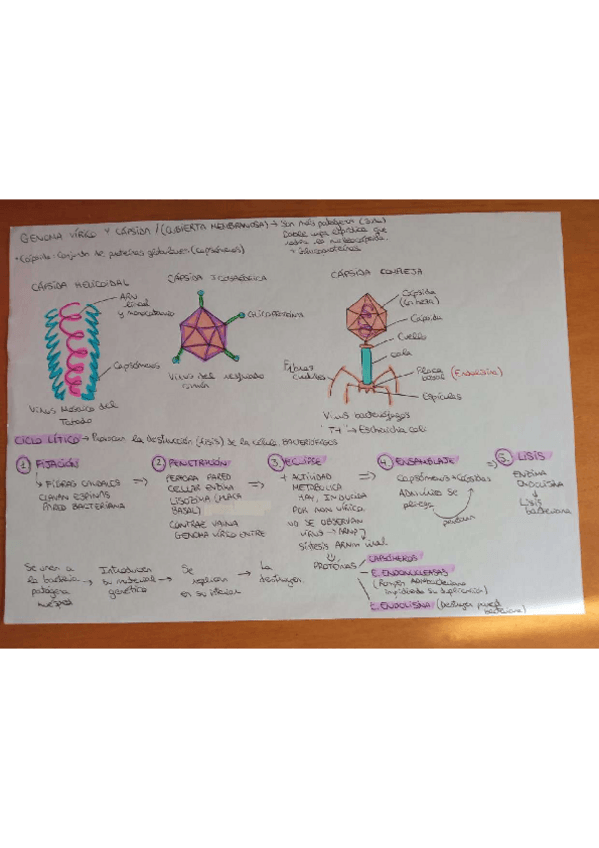 GENOMA VÍRICO Y CÁPSIDA / (CUBIERTA MEMBRANOSA) → Son más patógenos
Doble capa lipídica que
rodea la nucleocápsida.
+ Glucoproteínas
• Cápsida: Conjunto de proteínas globulares (capsómeros)
CÁPSIDA HELICOIDAL
ARN
lineal
y monocatenario
Capsómeros
Virus Mosaico del
Tabaco
CÁPSIDA ICOSAÉDRICA
GLICOPROTEINA
Virus del resfriado
común
CÁPSIDA COMPLEJA
Cápsida
(Cabeza)
Cápsida
Cuello
cola
Placa
basal (Endolisina)
Espículas
Fibras
caudales
Virus bacteriófagos
T4 → Escherichia coli
CICLO LÍTICO → Provocan la destrucción (lisis) de la célula. BACTERIÓFAGOS
1 FIJACIÓN
↳ FIBRAS CAUDALES
CLAVAN ESPINAS
PARED BACTERIANA
⇒
2 PENETRACIÓN
PERFORA PARED
CELULAR ENZIMA
LISOZIMA (PLACA
BASAL)
CONTRAE VAINA
GENOMA VÍRICO ENTRE
⇒
3. ECLIPSE
+ ACTIVIDAD
METABÓLICA
INDUCIDA
POR ARN VÍRICO.
NO SE OBSERVAN
VIRUS → ARNp
Síntesis ARNm viral
PROTEÍNAS
CAPSÓMEROS
E. ENDONUCLEASAS
(Rompen ADN bacteriano
impidiendo su duplicación)
E. ENDOLISINA (Destruyen pared
bacteriana)
⇒
4. ENSAMBLAJE
Capsómeros → Cápsidas
ADN vírico se
pliega
penetran
⇒
5. LISIS
ENZIMA
ENDOLISINA
↓
LISIS
bacteriana
Se unen a
la bacteria
patógena
→ Introducen
su material
genético
→ Se
replican
en su interior
→ La
destruyen